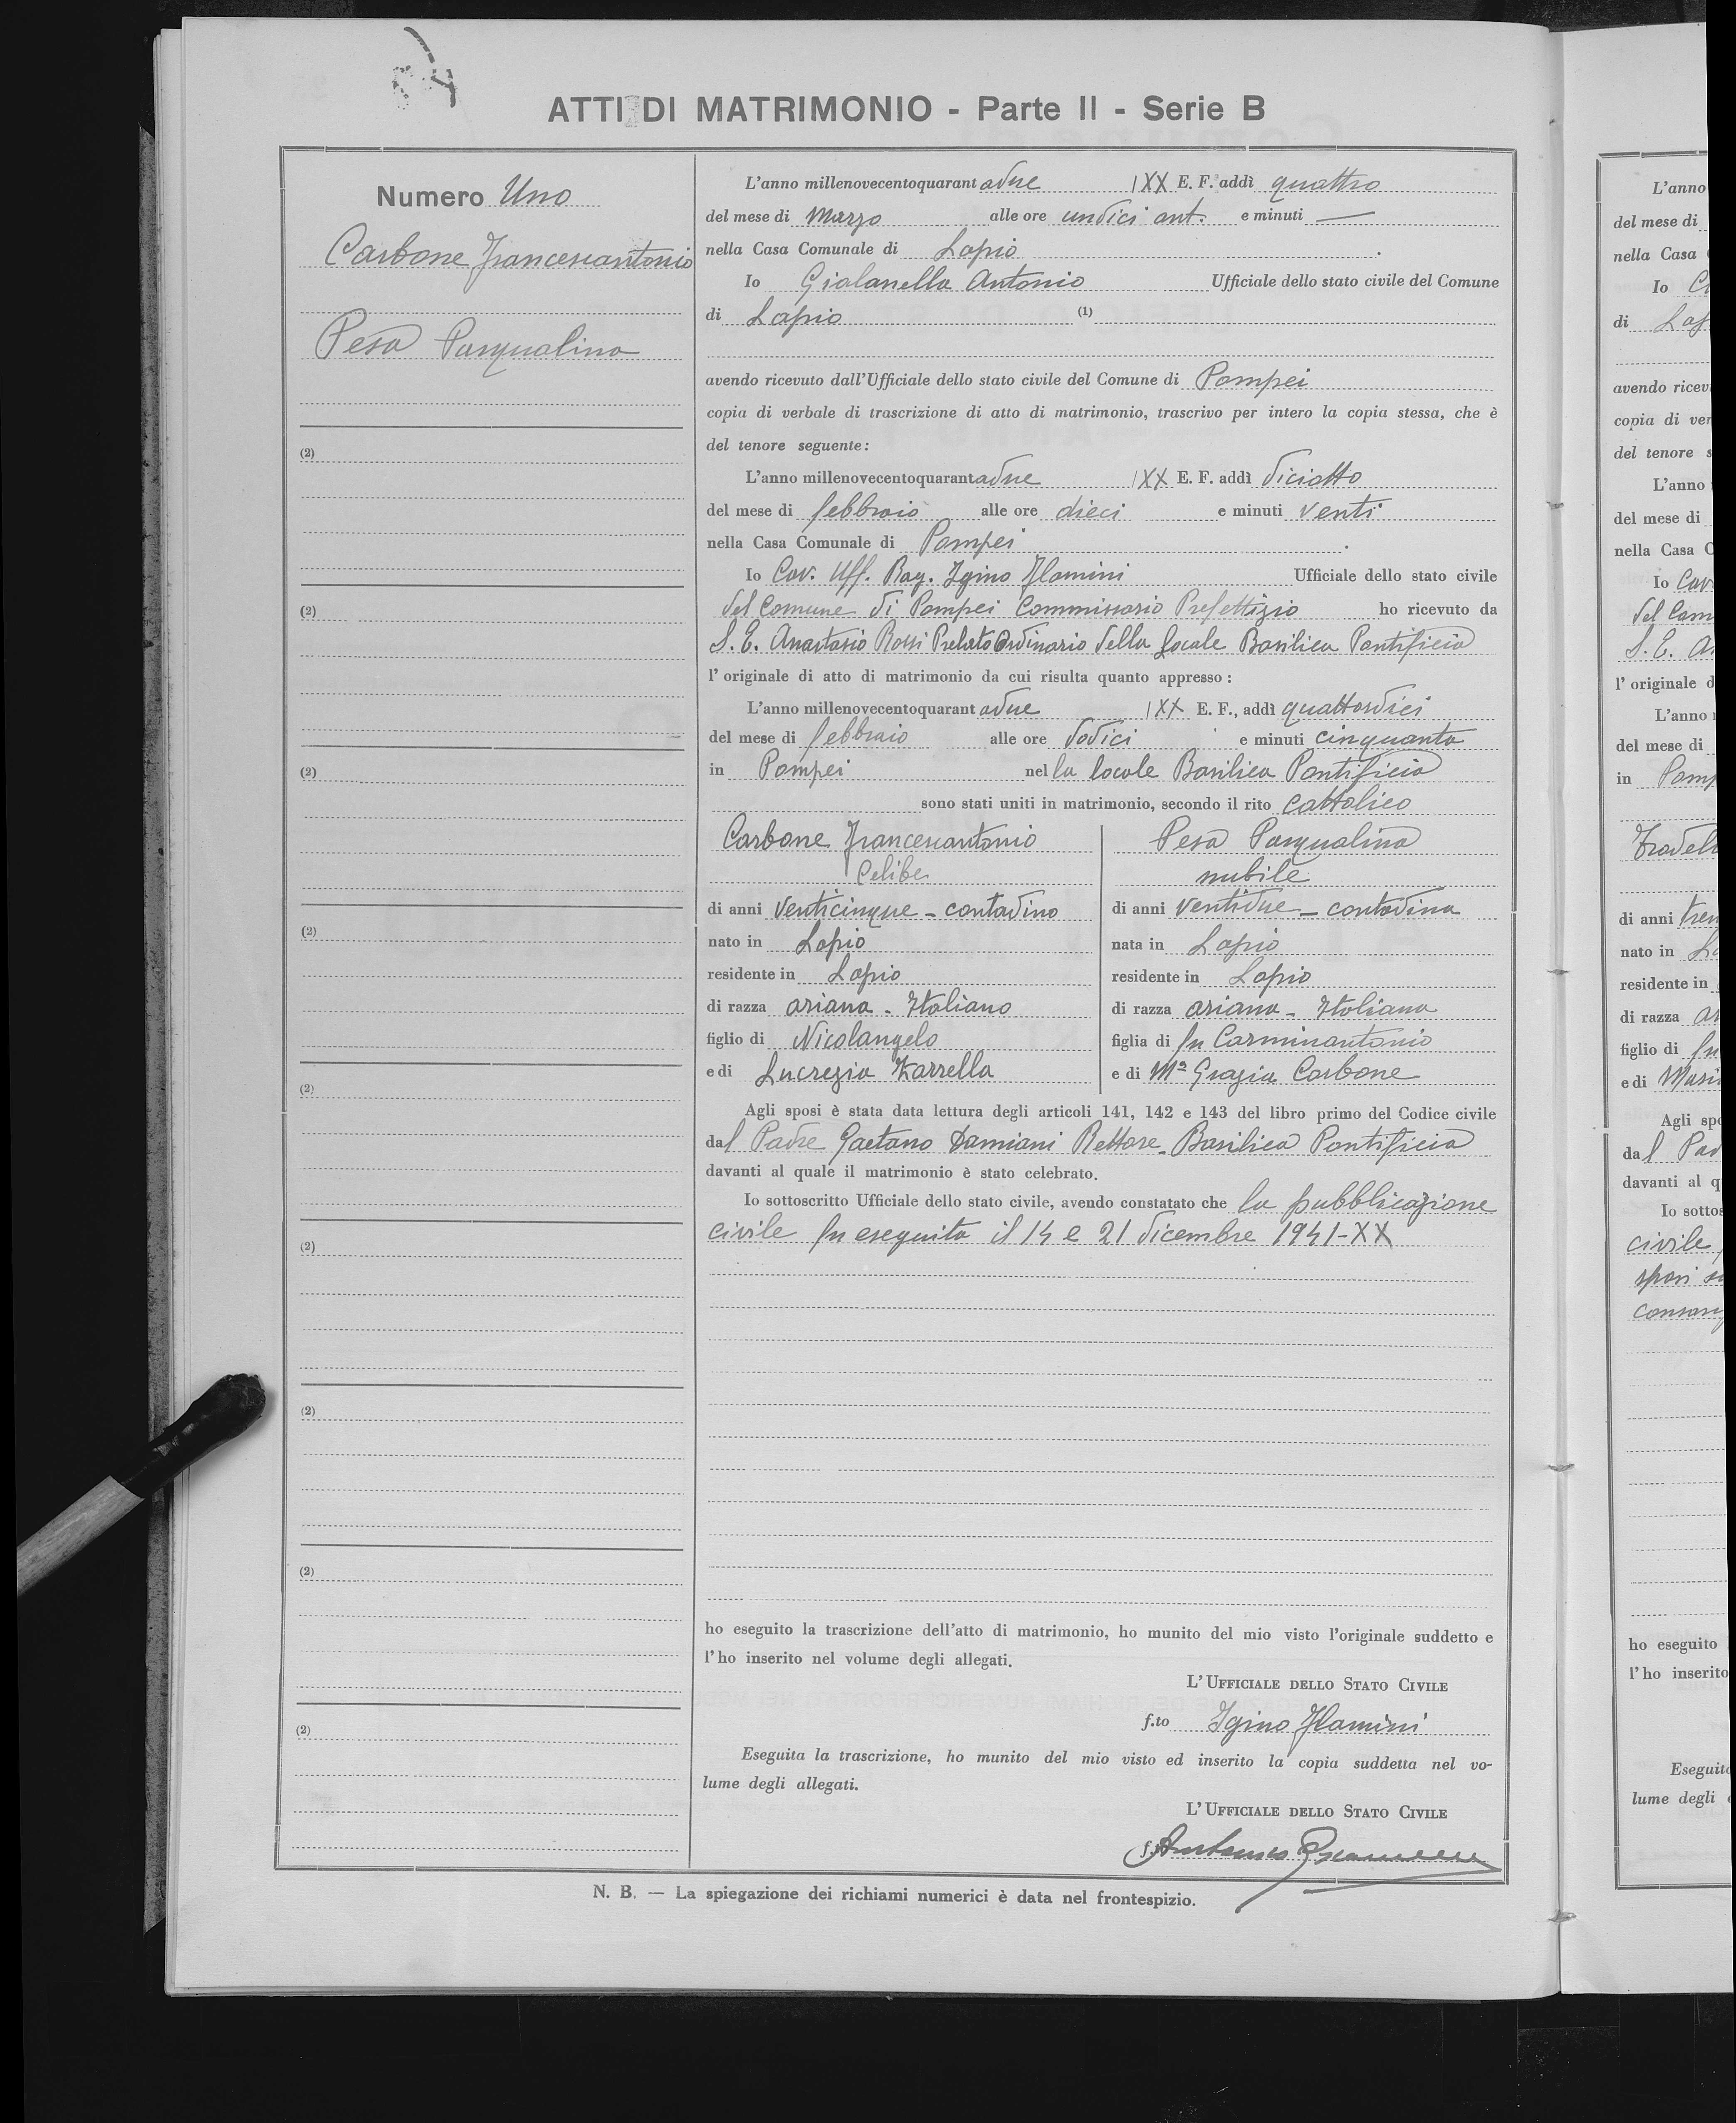 ATTI DI MATRIMONIO - Parte II - Serie B
Numero Uno
Carbone Francescantonio
Pesa Pasqualina
(2)
(2)
(2)
(2)
(2)
(2)
(2)
(2)
(2)
L'anno millenovecentoquarantadue XX E. F. addì quattro
del mese di Marzo alle ore undici ant. e minuti —
nella Casa Comunale di Lapio.
Io Gialanella Antonio Ufficiale dello stato civile del Comune
di Lapio (1)
avendo ricevuto dall'Ufficiale dello stato civile del Comune di Pompei
copia di verbale di trascrizione di atto di matrimonio, trascrivo per intero la copia stessa, che è
del tenore seguente:
L'anno millenovecentoquarantadue XX E. F. addì diciotto
del mese di febbraio alle ore dieci e minuti venti
nella Casa Comunale di Pompei.
Io Cav. Uff. Rag. Igino Flamini Ufficiale dello stato civile
del Comune di Pompei Commissario Prefettizio ho ricevuto da
S. E. Anastasio Rossi Prelato Ordinario della locale Basilica Pontificia
l'originale di atto di matrimonio da cui risulta quanto appresso:
L'anno millenovecentoquarantadue XX E. F., addì quattordici
del mese di febbraio alle ore dodici e minuti cinquanta
in Pompei nella locale Basilica Pontificia
sono stati uniti in matrimonio, secondo il rito cattolico
Carbone Francescantonio
Celibe
di anni venticinque - contadino
nato in Lapio
residente in Lapio
di razza ariana - Italiano
figlio di Nicolangelo
e di Lucrezia Zarrella
Pesa Pasqualina
nubile
di anni ventidue - contadina
nata in Lapio
residente in Lapio
di razza ariana - Italiana
figlia di fu Carminantonio
e di Mª Grazia Carbone
Agli sposi è stata data lettura degli articoli 141, 142 e 143 del libro primo del Codice civile
dal Padre Gaetano Damiani Rettore - Basilica Pontificia
davanti al quale il matrimonio è stato celebrato.
Io sottoscritto Ufficiale dello stato civile, avendo constatato che la pubblicazione
civile fu eseguita il 14 e 21 dicembre 1941-XX
ho eseguito la trascrizione dell'atto di matrimonio, ho munito del mio visto l'originale suddetto e
l'ho inserito nel volume degli allegati.
L'UFFICIALE DELLO STATO CIVILE
f.to Igino Flamini
Eseguita la trascrizione, ho munito del mio visto ed inserito la copia suddetta nel vo-
lume degli allegati.
L'UFFICIALE DELLO STATO CIVILE
Antonio
N. B. — La spiegazione dei richiami numerici è data nel frontespizio.
L'anno
del mese di
nella Casa
Io
di
avendo
copia di
del tenore
L'anno
del mese di
nella Casa
Io Cav.
del
S. E.
l'originale
L'anno
del mese di
in
di anni
nato in
residente in
di razza
figlio di fu
e di
Agli
dal
davanti al
Io
civile
sposi
ho eseguito
l'ho inserito
lume degli